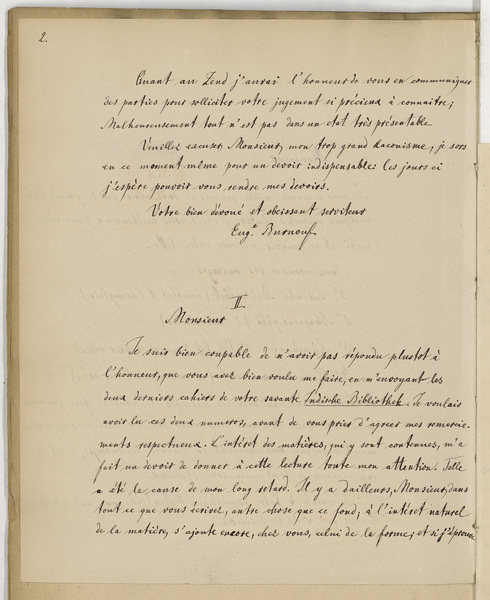 2.
Quant au Zend j'aurai l'honneur de vous en communiquer
des parties pour solliciter votre jugement si précieux à connaitre;
Malheureusement tout n'est pas dans un état très présentable.
Veuillez excuser, Monsieur, mon trop grand laconisme, je sors
en ce moment même pour un devoir indispensable: Ces jours ci
j'espère pouvoir vous rendre mes devoirs.
Votre bien dévoué et obeissant serviteur
Eug.e Burnouf.
II
Monsieur
Je suis bien coupable de n'avoir pas répondu plustot à
l'honneur, que vous avez bien voulu me faire, en m'envoyant les
deux derniers cahiers de votre savante Indische Bibliothek. Je voulais
avoir lu ces deux numeros, avant de vous prier d'agreer mes remercie-
ments respectueux. L'intéret des matières, qui y sont contenues, m'a
fait un devoir de donner à cette lecture toute mon attention. Telle
a été la cause de mon long retard. Il y a dailleurs, Monsieur, dans
tout ce que vous écrivez, autre chose que ce fond; à l'intérêt naturel
de la matière, s'ajoute encore, chez vous, celui de la forme; et si j'éprouve